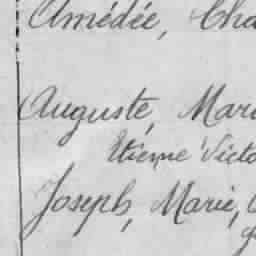 Amédée, Cha
Auguste, Mari
Etienne Victo
Joseph, Marie,